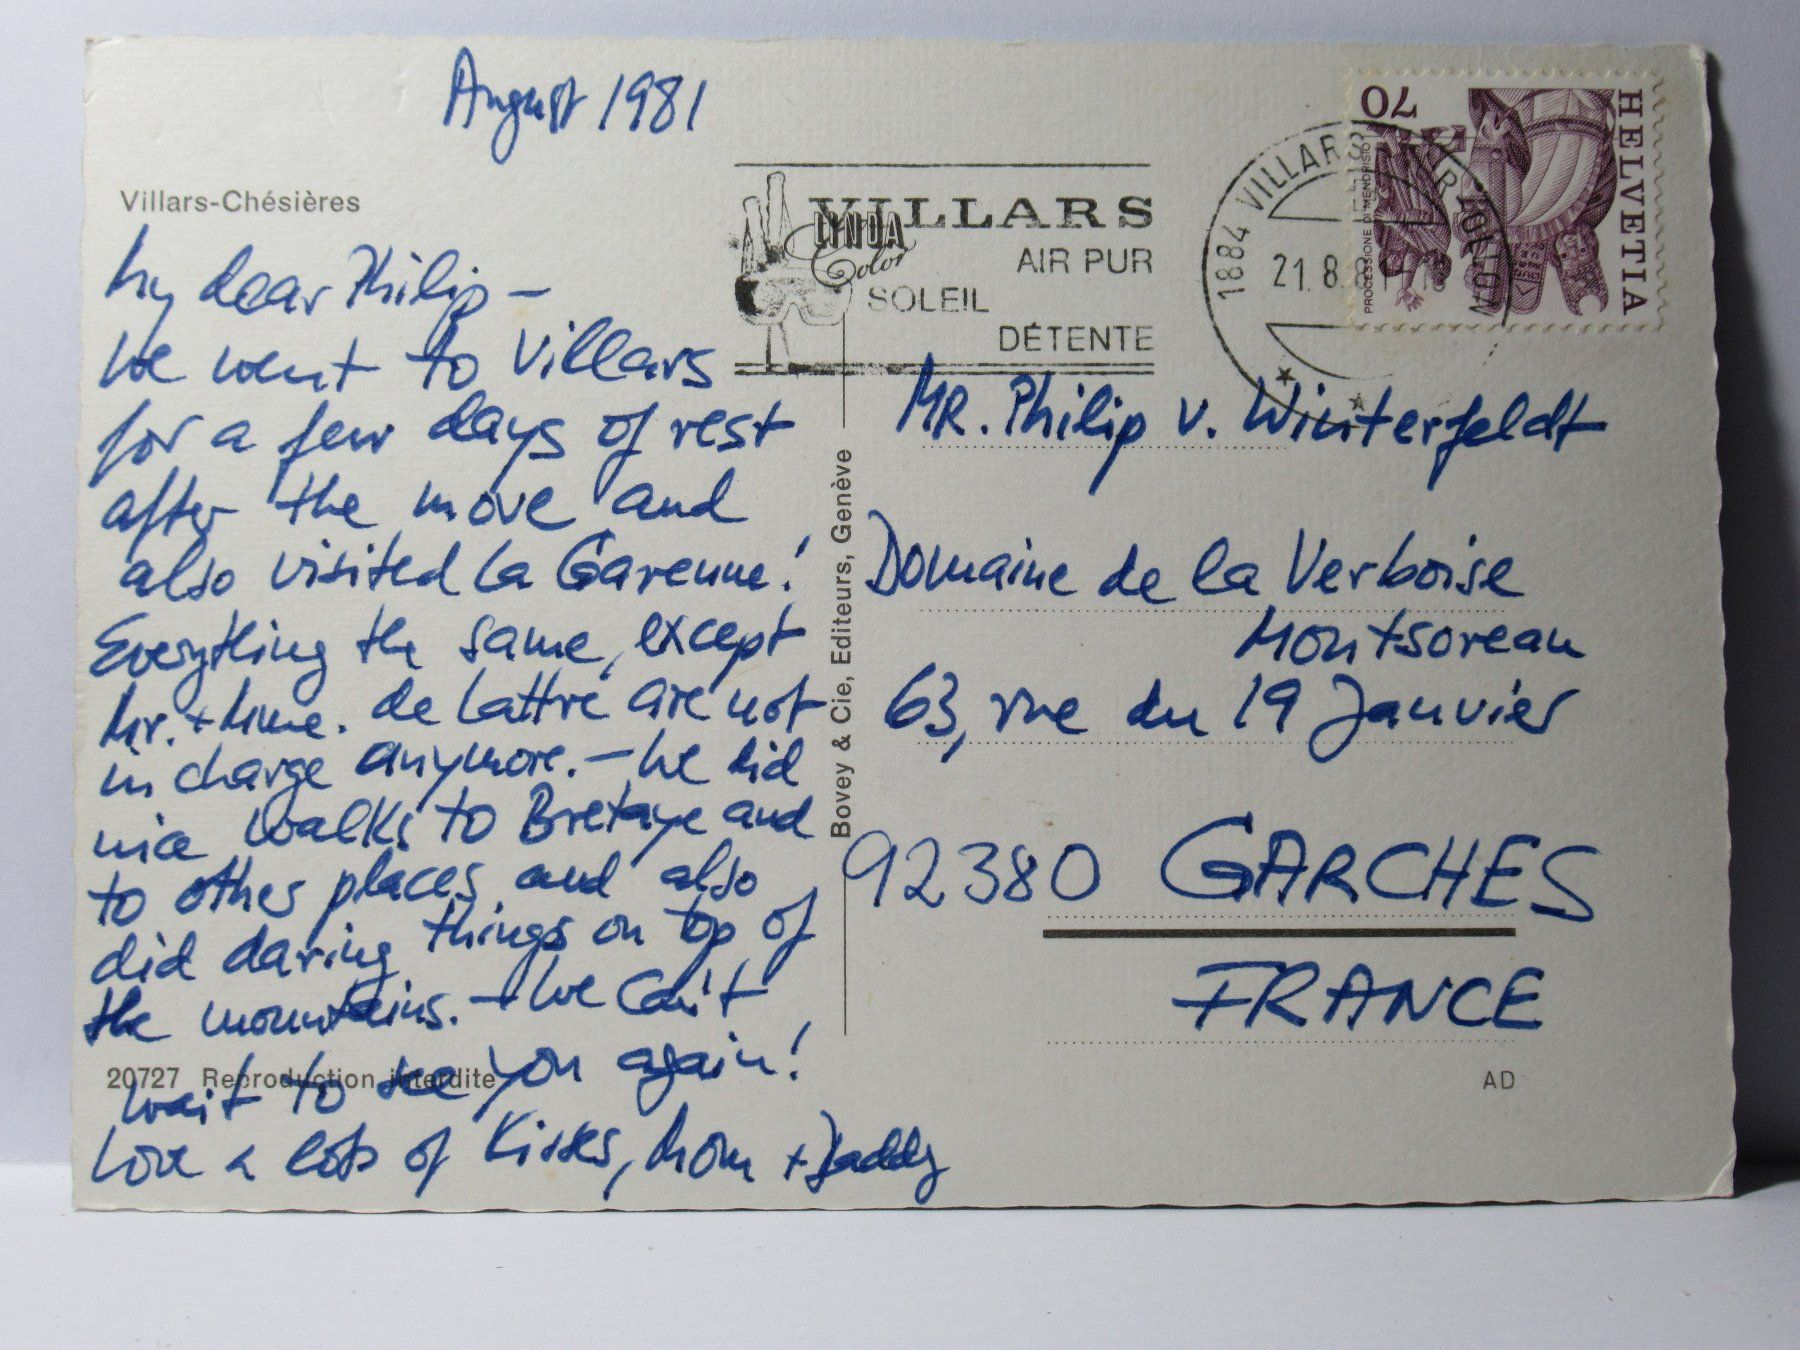 August 1981
Villars-Chésières
My dear Philip –
We went to Villars
for a few days of rest
after the move and
also visited La Garenne!
Everything the same, except
Mr. + Mme. de Lattre are not
in charge anymore. – We did
nice walks to Bretaye and
to other places and also
did daring things on top of
the mountains. – We can't
wait to see you again!
Love & lots of Kisses, Mom + Daddy
20727 Reproduction interdite
VILLARS
LYNDA
Color
AIR PUR
SOLEIL
DÉTENTE
1884 VILLARS
21.8.81
HELVETIA
70
PROCESSIONE DI MENDRISIO
Bovey & Cie, Editeurs, Genève
MR. Philip v. Winterfeldt
Domaine de la Verboise
Montsoreau
63, rue du 19 Janvier
92380 GARCHES
FRANCE
AD